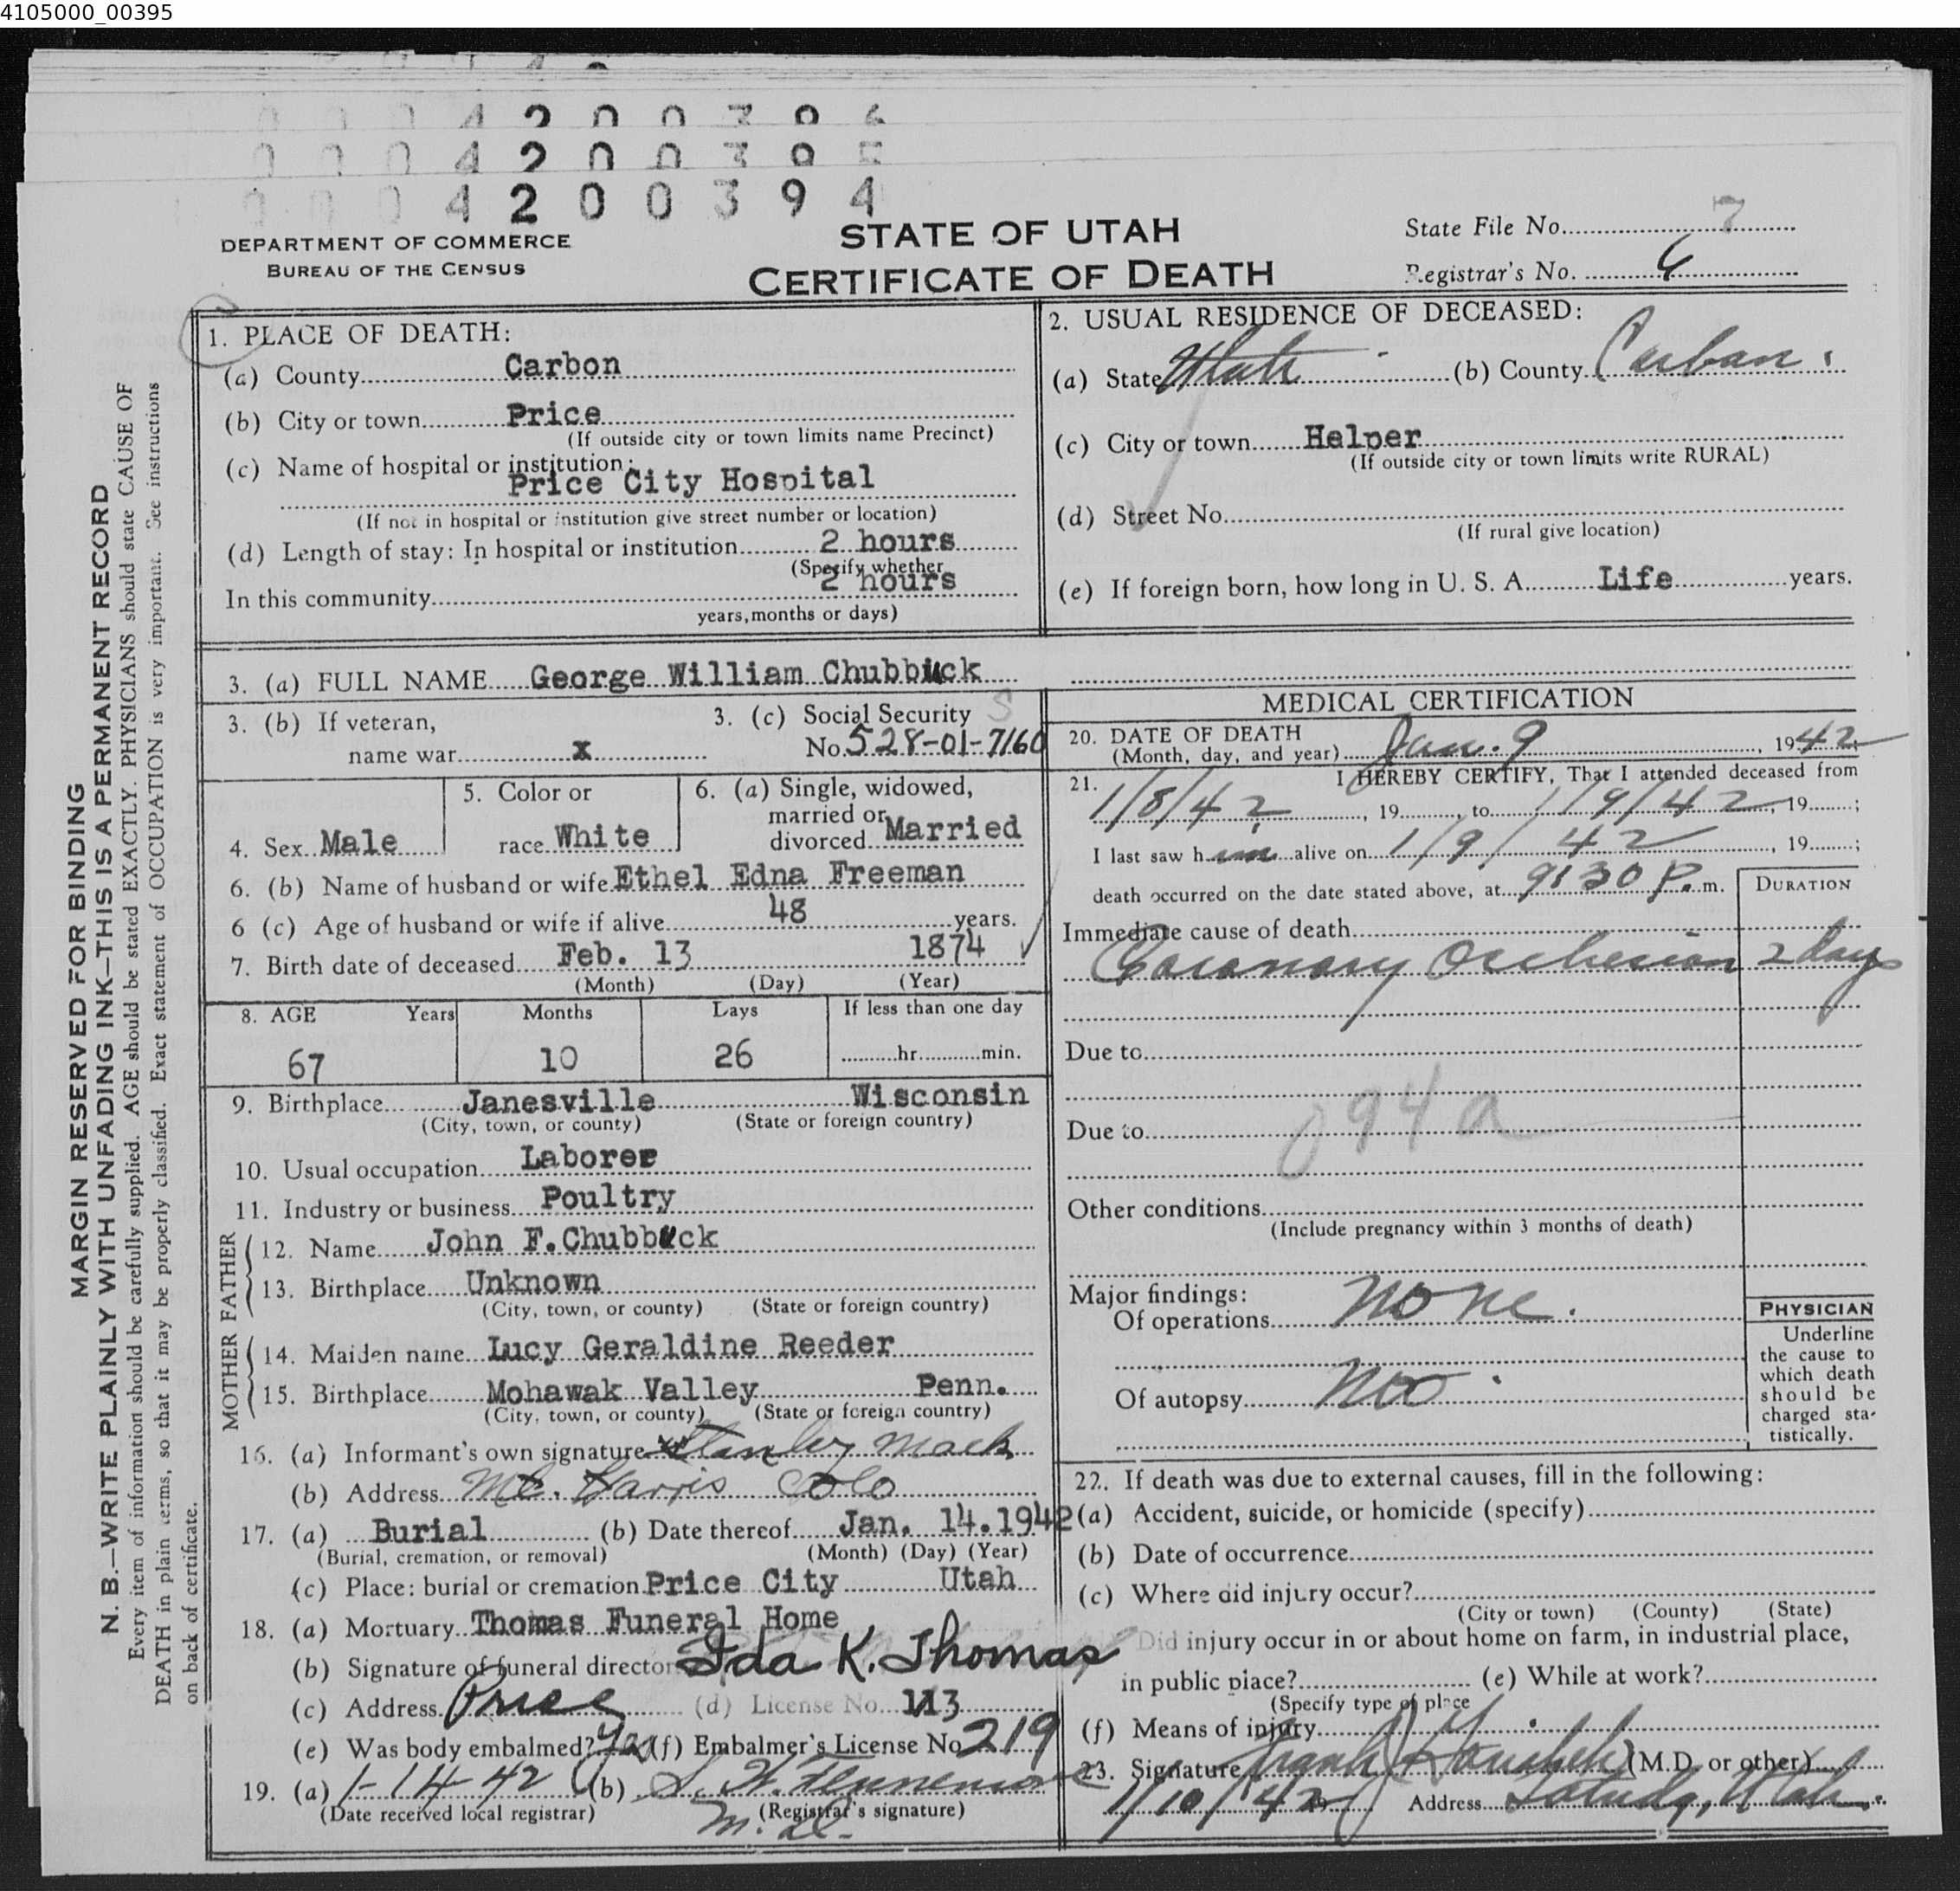 4105000_00395
4200396
4200395
0004200394
DEPARTMENT OF COMMERCE
BUREAU OF THE CENSUS
STATE OF UTAH
CERTIFICATE OF DEATH
State File No. 7
Registrar's No. 6
MARGIN RESERVED FOR BINDING
N. B.—WRITE PLAINLY WITH UNFADING INK—THIS IS A PERMANENT RECORD
Every item of information should be carefully supplied. AGE should be stated EXACTLY. PHYSICIANS should state CAUSE OF
DEATH in plain terms, so that it may be properly classified. Exact statement of OCCUPATION is very important. See instructions
on back of certificate.
1. PLACE OF DEATH:
(a) County Carbon
(b) City or town Price
(If outside city or town limits name Precinct)
(c) Name of hospital or institution:
Price City Hospital
(If not in hospital or institution give street number or location)
(d) Length of stay: In hospital or institution 2 hours
(Specify whether
In this community 2 hours
years, months or days)
2. USUAL RESIDENCE OF DECEASED:
(a) State Utah (b) County Carbon.
(c) City or town Helper
(If outside city or town limits write RURAL)
(d) Street No.
(If rural give location)
(e) If foreign born, how long in U. S. A. Life years.
3. (a) FULL NAME George William Chubbuck
3. (b) If veteran,
name war x
3. (c) Social Security S
No. 528-01-7160
4. Sex Male
5. Color or
race White
6. (a) Single, widowed,
married or
divorced Married
6. (b) Name of husband or wife Ethel Edna Freeman
6 (c) Age of husband or wife if alive 48 years.
7. Birth date of deceased Feb. 13 1874
(Month) (Day) (Year)
8. AGE Years Months Days If less than one day
67 10 26 hr. min.
9. Birthplace Janesville Wisconsin
(City, town, or county) (State or foreign country)
10. Usual occupation Laborer
11. Industry or business Poultry
FATHER
12. Name John F. Chubbuck
13. Birthplace Unknown
(City, town, or county) (State or foreign country)
MOTHER
14. Maiden name Lucy Geraldine Reeder
15. Birthplace Mohawak Valley Penn.
(City, town, or county) (State or foreign country)
16. (a) Informant's own signature Stanley Mack
(b) Address Mt. Harris Colo
17. (a) Burial (b) Date thereof Jan. 14. 1942
(Burial, cremation, or removal) (Month) (Day) (Year)
(c) Place: burial or cremation Price City Utah
18. (a) Mortuary Thomas Funeral Home
(b) Signature of funeral director Ida K. Thomas
(c) Address Price (d) License No. 113
(e) Was body embalmed? Yes (f) Embalmer's License No 219
19. (a) 1-14-42 (b)
(Date received local registrar) (Registrar's signature)
MEDICAL CERTIFICATION
20. DATE OF DEATH
(Month, day, and year) Jan. 9, 1942
21. I HEREBY CERTIFY, That I attended deceased from
1/8/42, 19, to 1/9/42, 19;
I last saw him alive on 1/9/42, 19;
death occurred on the date stated above, at 9:30 P. m.
DURATION
Immediate cause of death
Coronary Occlusion 2 days
Due to
Due to 094a
Other conditions
(Include pregnancy within 3 months of death)
Major findings:
Of operations None.
Of autopsy No.
PHYSICIAN
Underline
the cause to
which death
should be
charged sta-
tistically.
22. If death was due to external causes, fill in the following:
(a) Accident, suicide, or homicide (specify)
(b) Date of occurrence
(c) Where did injury occur?
(City or town) (County) (State)
Did injury occur in or about home on farm, in industrial place,
in public place? (e) While at work?
(Specify type of place
(f) Means of injury
23. Signature Frank (M.D. or other)
1/10/42 Address Utah.